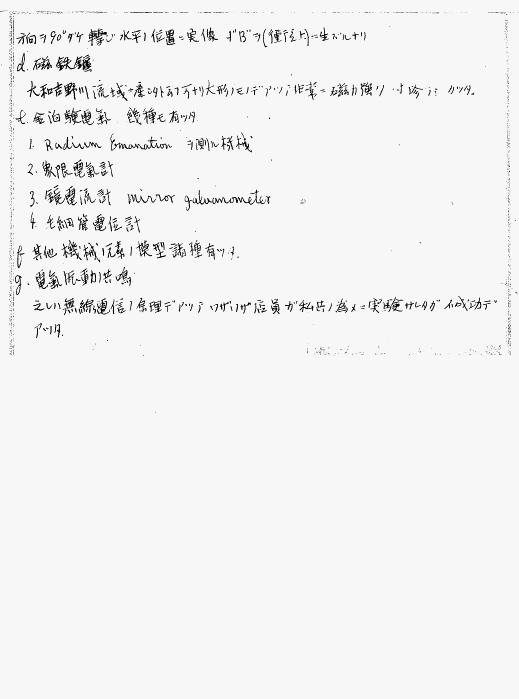 方向ヲ90°ダケ轉ジ水平ノ位置ニ実像ガ"B"ヲ(径上)ニ生ズルナリ
d. 磁鉄鑛
大和吉野川流域ニ産シタ大形ノモノデアッテ非常ニ磁力強ク
e. 金泊験電氣 幾種モ有ッタ
1. Radium Emanation ヲ測ル機械
2. 象限電氣計
3. 鏡電流計 mirror galvanometer
4. 毛細管電位計
f. 其他機械ノ元素ノ模型諸種有ッタ.
g. 電氣振動ノ共鳴
之レハ無線電信ノ原理デアッテワザワザ店員ガ私共ノ為メニ実験サレタガ不成功デ
アッタ.